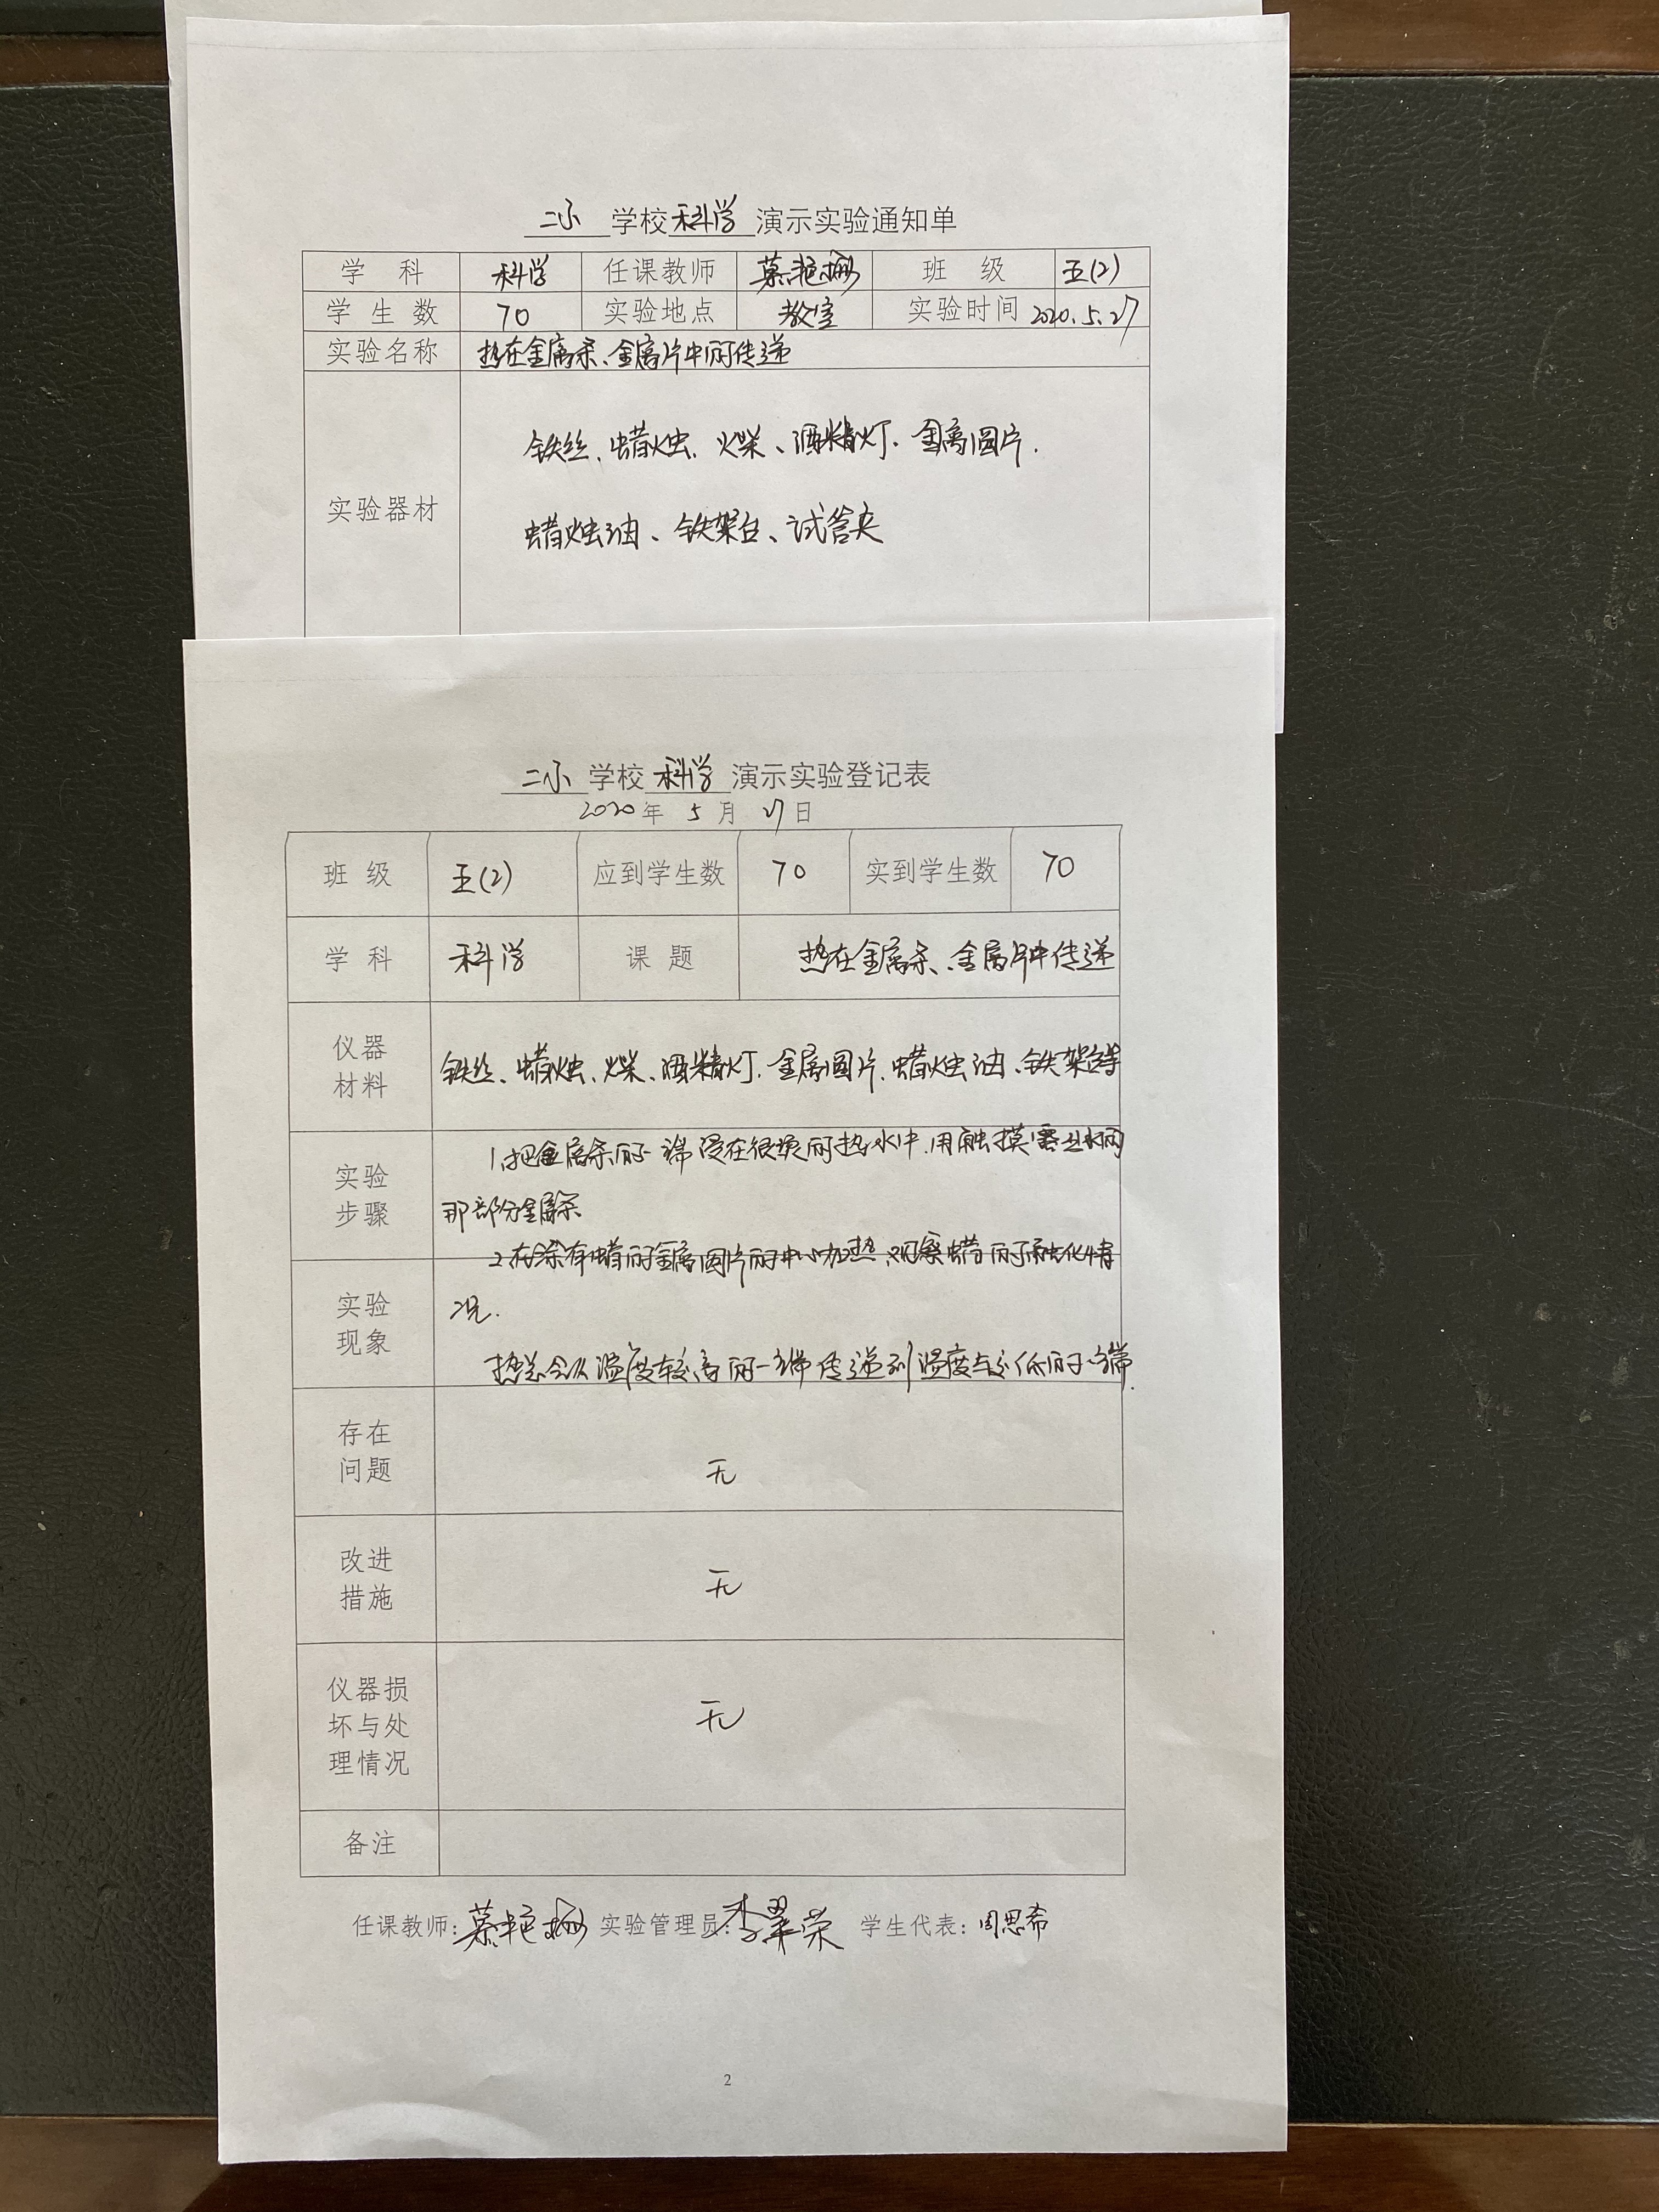 二小 学校 科学 演示实验通知单
学 科 科学 任课教师 慕艳娜 班 级 五(2)
学 生 数 70 实验地点 教室 实验时间 2020.5.27
实验名称 热在金属条、金属片中的传递
铁丝、蜡烛、火柴、酒精灯、金属圆片、
实验器材
蜡烛油、铁架台、试管夹
二小 学校 科学 演示实验登记表
2020 年 5 月 27 日
班 级 五(2) 应到学生数 70 实到学生数 70
学 科 科学 课 题 热在金属条、金属片中传递
仪器
材料
铁丝、蜡烛、火柴、酒精灯、金属圆片、蜡烛油、铁架台等
实验
步骤
1、把金属条的一端浸在很烫的热水中,用触摸露出水面
那部分金属条
2、在涂有蜡的金属圆片的中心加热,观察蜡的融化情
况.
实验
现象
热总会从温度较高的一端传递到温度较低的一端.
存在
问题
无
改进
措施
无
仪器损
坏与处
理情况
无
备注
任课教师: 实验管理员:李翠荣 学生代表:周思希
2